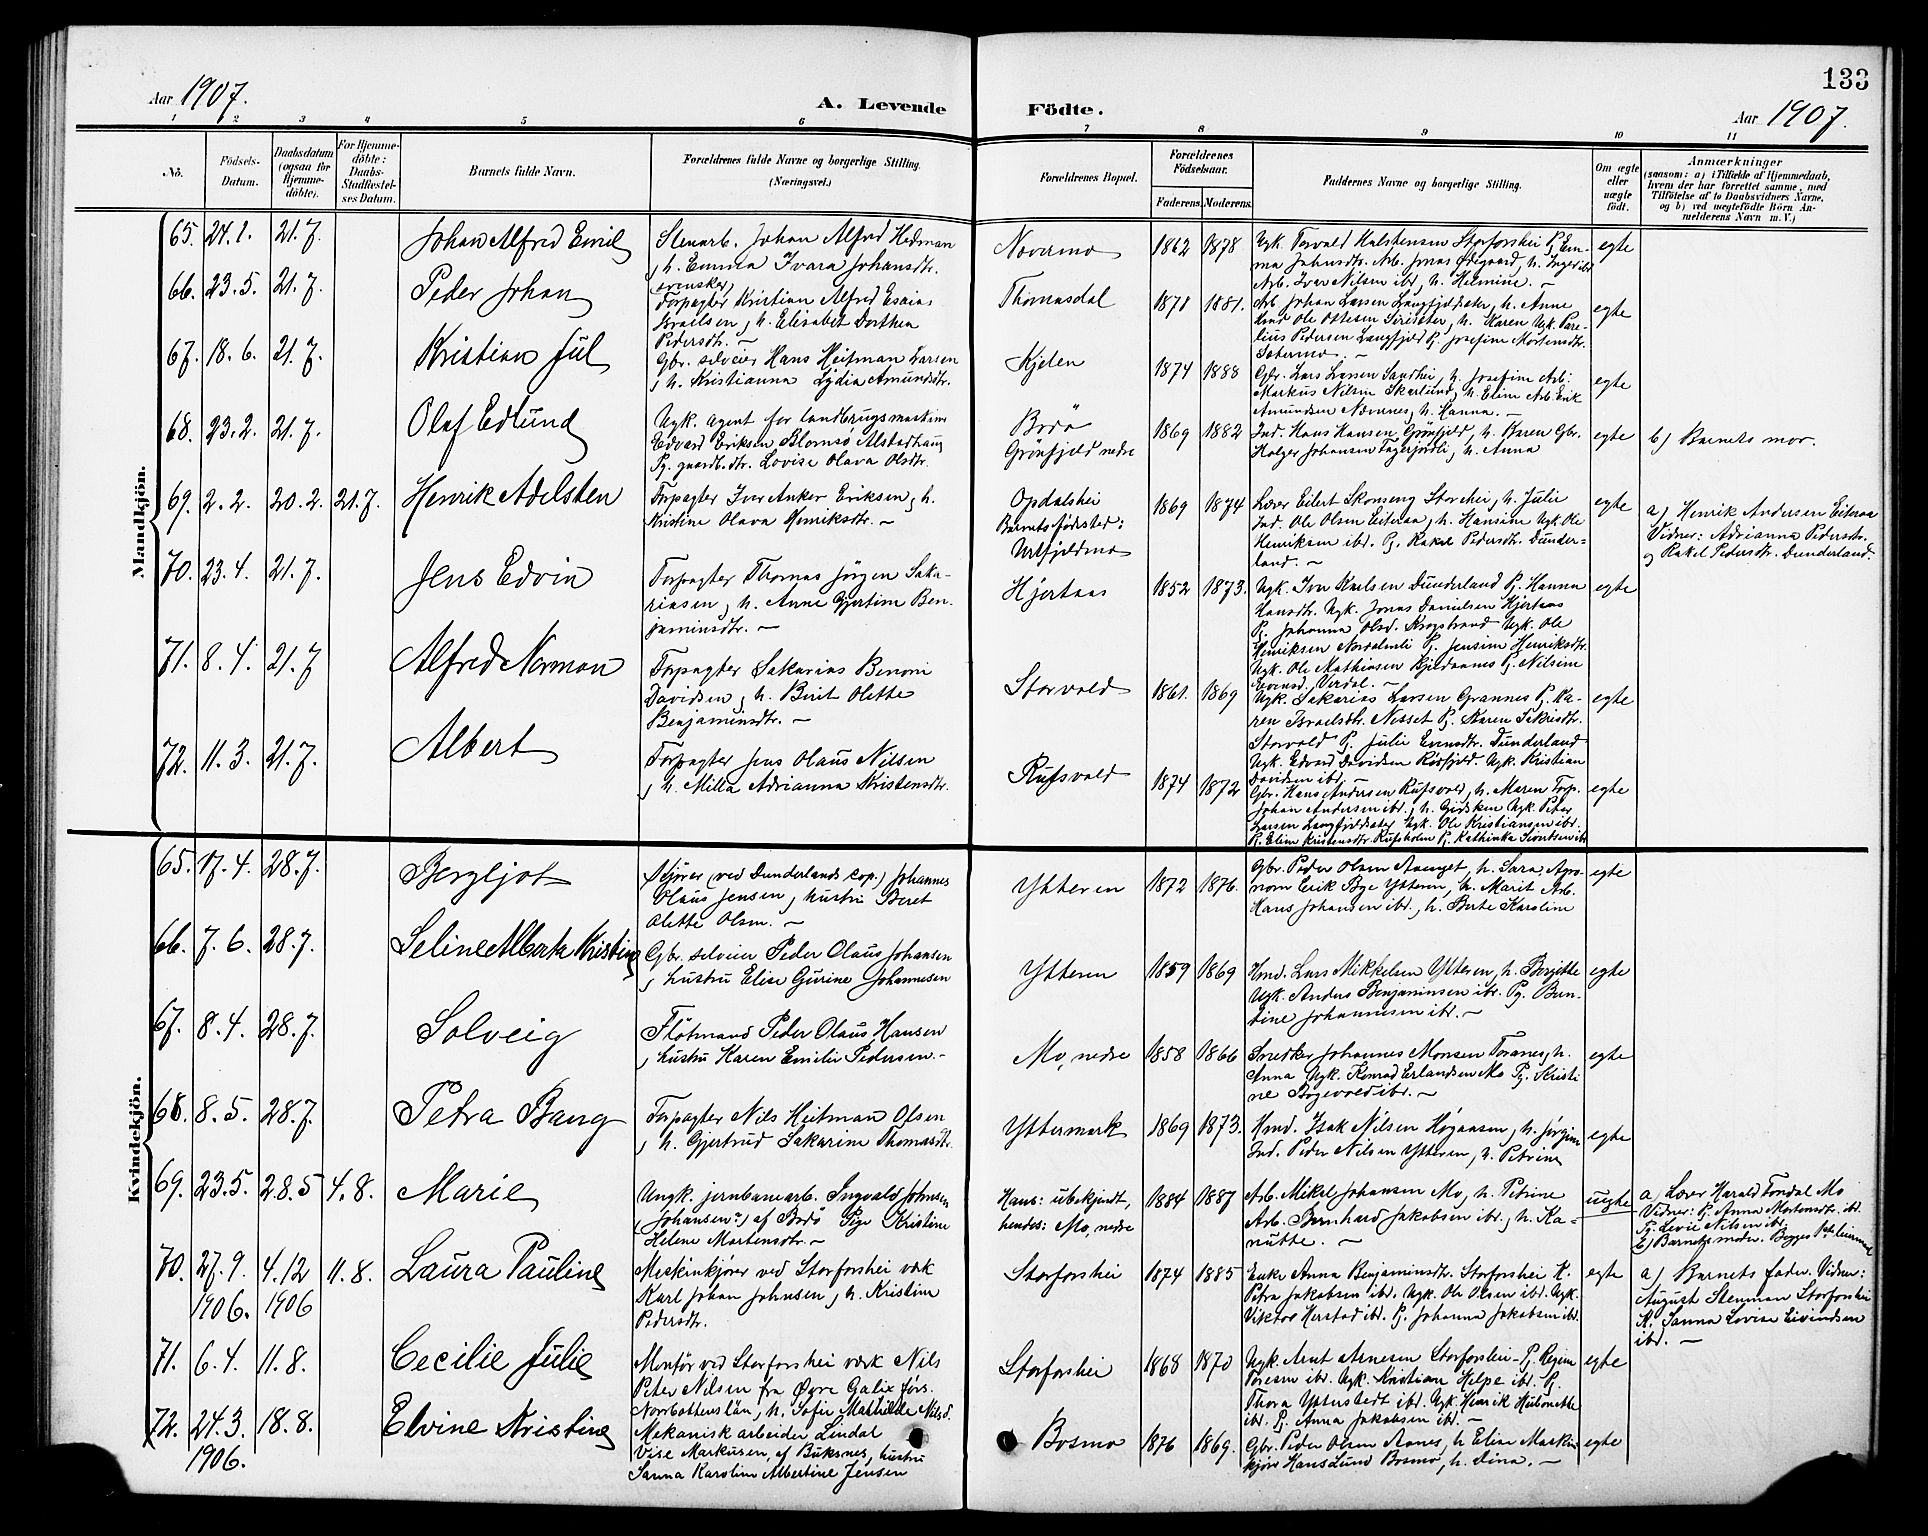 133
Aar 1907.
A. Levende Födte.
Aar 1907.
1 2 3 4 5 6 7 8 9 10 11
Nö.
Födsels-
Datum.
Daabsdatum
(ogsaa for
Hjemme-
döbte).
For Hjemme-
döbte:
Daabs-
Stadfæstel-
ses Datum.
Barnets fulde Navn.
Forældrenes fulde Navne og borgerlige Stilling.
(Næringsvei.)
Forældrenes Bopæl.
Forældrenes
Födselsaar.
Faderens. Moderens.
Faddernes Navne og borgerlige Stilling.
Om ægte
eller
uægte
födt.
Anmærkninger
(saasom: a) i Tilfælde af Hjemmedaab,
hvem der har forrettet samme, med
Tilföielse af to Daabsvidners Navne,
og b) ved uægtefödte Börn An-
melderens Navn m. V.)
Mandkjön.
65. 24.1. 21.7. Johan Alfred Emil
Stenarb. Johan Alfred Hedman
, h. Emma Ivara Johansdtr.
svensker
Novarmo 1862 1878
Ugk. Torvald Halstensen Storforshei Pj. Em-
ma Johnsdtr. Arb. Jonas Ødegaard, h. Inger ibr
Arb. Ivar Nilsen ibr, h. Helmine. —
egte
66. 23.5. 21.7. Peder Johan
Forpagter Kristian Alfred Esaias
Israilsen, h. Elisabet Dorthea
Pedersdtr. —
Thomasdal 1878 1881.
Arb. Johan Larsen Langfjeldsæter, h. Anne
Knud Ole Ottesen h. Karen Ugk. Pare-
lius Pedersen Langfjeld Pj. Josefine Mortensdtr.
Sætermo. —
egte
67. 18.6. 21.7. Kristian Jul
Gbr. selveier Hans Heitman Larsen
, h. Kristianna Lydia Amundsdtr.
Kjelen 1874 1888
Gbr. Lars Larsen Sandhei, h. Josefine Arb.
Markus Nilsen Skarlund, h. Eline Arb. Erik
Amundsen Nævernes, h. Hanna. —
egte
68. 23.2. 21.7. Olaf Edlund
Ugk. agent for landbrugsmaskiner
Edvard Eriksen Blomsö Alstadhaug
Pj. gaardb. dtr. Lovise Olava Olsdtr.
Bodö
Grönfjeld nedre 1869 1882
Ind. Hans Hansen Grönfjeld, h. Karen Gbr.
Holger Johansen Fagerjordli, h. Anna
egte b) Barnets mor.
69. 2.2. 20.2. 21.7. Henrik Adelsten
Forpagter Iver Anker Eriksen, h.
Kristine Olava Henriksdtr. —
Opdalshei
Barnets födsted:
Urtfjeldmo 1869 1874
Lærer Eilert Skonseng Storshei, h. Julie
Ind. Ole Olsen Eiteraa, h. Hansine Ugk. Ole
Henriksen ibr. Pj. Rakel Pedersdtr. Dunder-
land. —
egte
a) Henrik Andersen Eiteraa
Vidner: Adrianna Pedersdtr.
og Rakel Pedersdtr. Dunderland.
70. 23.4. 21.7. Jens Edvin
Forpagter Thomas Jörgen Saka-
riasen, h. Anne Gjertine Ben-
jaminsdtr. —
Hjertaas 1852 1873.
Ugk. Iver Karlsen Dunderland Pj. Hanna
Hansdtr. Ugk. Jonas Danielsen Hjertaas
Pj. Johanna Olsd. Krogstrand Ugk. Ole
Henriksen Norddalsli Pj. Jensine Henriksdtr.
Ugk. Ole Mathiasen Kjeldaanes Pj. Nilsine
Evensd. Virdal. —
egte
71. 8.4. 21.7 Alfred Norman
Forpagter Sakarias Benoni
Davidsen, h. Birit Olette
Benjaminsdtr. —
Storvold 1861. 1869
Ugk. Sakarias Larsen Grannes Pj. Ka-
ren Israelsdtr. Nesset Pj. Karen Sakrisdtr.
Storvold Pj. Julie Evensdtr. Dunderland
Ugk. Edvard Davidsen Rösfjeld. Ugk. Kristian
Davidsen ibr. —
egte
72. 11.3. 21.7. Albert
Forpagter Jens Olaus Nilsen
, h. Milla Adrianna Kristensdtr.
Rufsvold 1874 1872
Gbr. Hans Andersen Rufsvold, h. Maren Forp.
Johan Andersen ibr., h. Gidsken Ugk. Peter
Larsen Langfjeldsæter Ugk. Ole Kristiansen ibr.
Pj. Eline Kristensdtr. Rufsholm Pj. Kathinka Sivertsen ibr
egte
Kvindekjön.
65. 17.4. 28.7. Bergljot
Kjörer (ved Dunderlands cop.) Johannes
Olaus Jensen, hustru Beret
Olette Olsen. —
Ytteren 1872 1876.
Gbr. Peder Olsen Aaenget, h. Sara, Agro-
nom Erik Bye Ytteren, h. Marit Arb.
Hans Johansen ibr., h. Berte Karoline
egte
66. 7.6. 28.7. Seline Alberta Kristine
Gbr. selveier Peder Olaus Johansen
, hustru Elise Gurine Johannesen
Ytteren 1859 1869
Hmd. Lars Mikkelsen Ytteren, h. Borgitte
Ugk. Anders Benjaminsen ibr. Pj. Bern-
tine Johannesen ibr. —
egte
67. 8.4. 28.7. Solveig
Flötmand Peder Olaus Hansen
, hustru Karen Emilie Pedersen. —
Mo, nedre 1858 1866
Snedker Johannes Monsen Toranes, h.
Anna Ugk. Konrad Erlandsen Mo Pj. Kristi
ne Bögevold ibr. —
egte
68. 8.5. 28.7. Petra Bang
Forpagter Nils Heitman Olsen
, h. Gjertrud Sakarine Thomasdtr.
Yttermark 1869 1873.
Hmd. Isak Nilsen Högaasen, h. Jörgine
Ind. Peder Nilsen Ytteren, h. Petrine
egte
69. 23.5. 28.5 4.8. Marie
Ungk. jernbanearb. Ingvald Johnsen
(Johansen?) af Bodö Pige Kristine
Helene Mortensdtr. —
Hans: ubekjendt,
hendes: Mo, nedre 1884 1887
Arb. Mikal Johansen Mo, h. Petrine
Arb. Bernhard Jakobsen ibr., h. Ka-
nutte. —
uegte
a) Lærer Harald Fondal Mo
Vidner: Pj. Anna Mortensdtr. ibr.
Pj. Levie Nilsen ibr.
b) Barnets moder. Begges 1ste leiermaal
70. 27.9. 1906. 4.12 1906 11.8. Laura Pauline
Maskinkjörer ved Storforshei værk
Karl Johan Johnsen, h. Kristine
Pedersdtr.
Storforshei 1874 1885
Enke Anna Benjaminsdtr. Storforshei K.
Petra Jakobsen ibr. Ugk. Ole Olsen ibr. Ugk.
Viktor Herstad ibr. Pj. Johanna Jakobsen ibr.
egte
a) Barnets fader. Vidner:
August Stenman Storforshei
K. Sanna Lovise Eivindsen
ibr. —
71. 6.4. 11.8. Cecilie Julie
Montör ved Storforshei værk Nils
Peter Nilsen fra Övre Galix förs.
Norrbottenslän, h. Sofie Mathilde Nilsd.
Storforshei 1868 1870
Ugk. Arnt Arnesen Storforshei Pj. Regine
Toresen ibr. Ugk. Kristian Helpe ibr. Pj.
Thora Ytterstedt ibr. Ugk. Henrik ibr. Pj. Anna Jakobsen ibr. —
egte
72. 24.3. 1906. 18.8. Elvine Kristine
Mekanisk arbeider Lindal
Vise Markusen, af Buksnes, hustru
Sanna Karoline Albertine Jensen
Bosmo 1876 1869.
Gbr. Peder Olsen Aanes, h. Elise Maskin-
kjörer Hans Lund Bosmo, h. Dina. —
egte